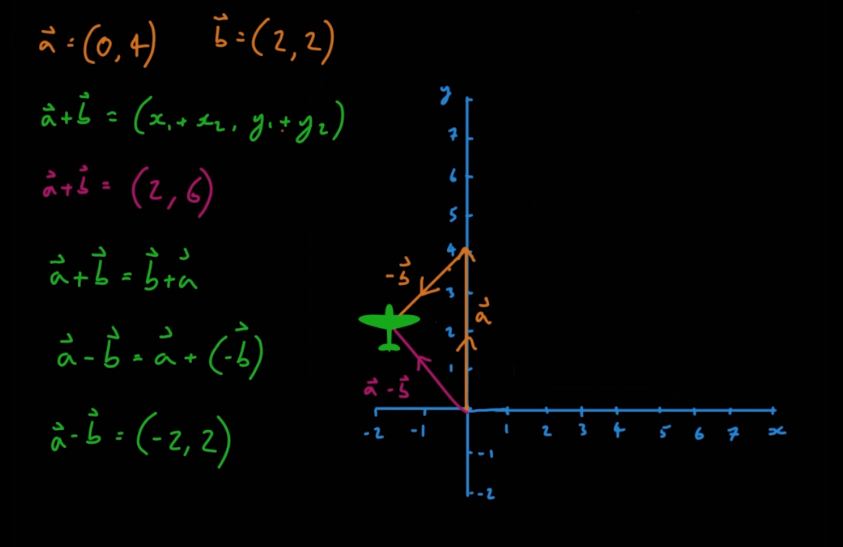 a⃗ = (0, 4) b⃗ = (2, 2)
a⃗ + b⃗ = (x₁ + x₂, y₁ + y₂)
a⃗ + b⃗ = (2, 6)
a⃗ + b⃗ = b⃗ + a⃗
a⃗ - b⃗ = a⃗ + (-b⃗)
a⃗ - b⃗ = (-2, 2)
y
7
6
5
4
3
2
1
-b⃗
a⃗
a⃗ - b⃗
-2 -1 1 2 3 4 5 6 7 x
-1
-2